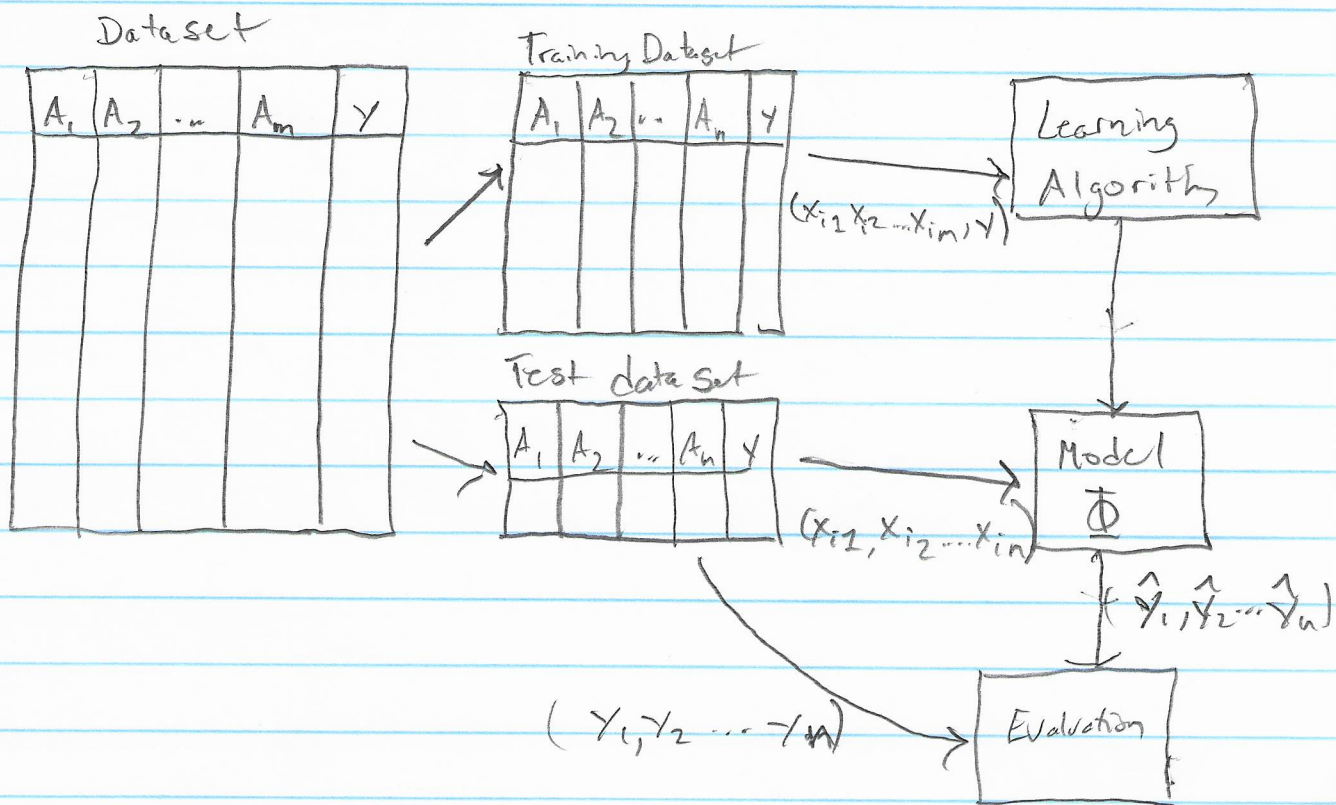 Dataset
A₁ A₂ ... Aₘ Y
Training Dataset
A₁ A₂ ... Aₙ Y
(xᵢ₁ xᵢ₂ ... xᵢₘ, y)
Learning
Algorithm
Test data set
A₁ A₂ ... Aₙ Y
(xᵢ₁, xᵢ₂ .... xᵢₙ)
Model
Φ
(ŷ₁, ŷ₂ ... ŷₙ)
(y₁, y₂ ... yₙ)
Evaluation